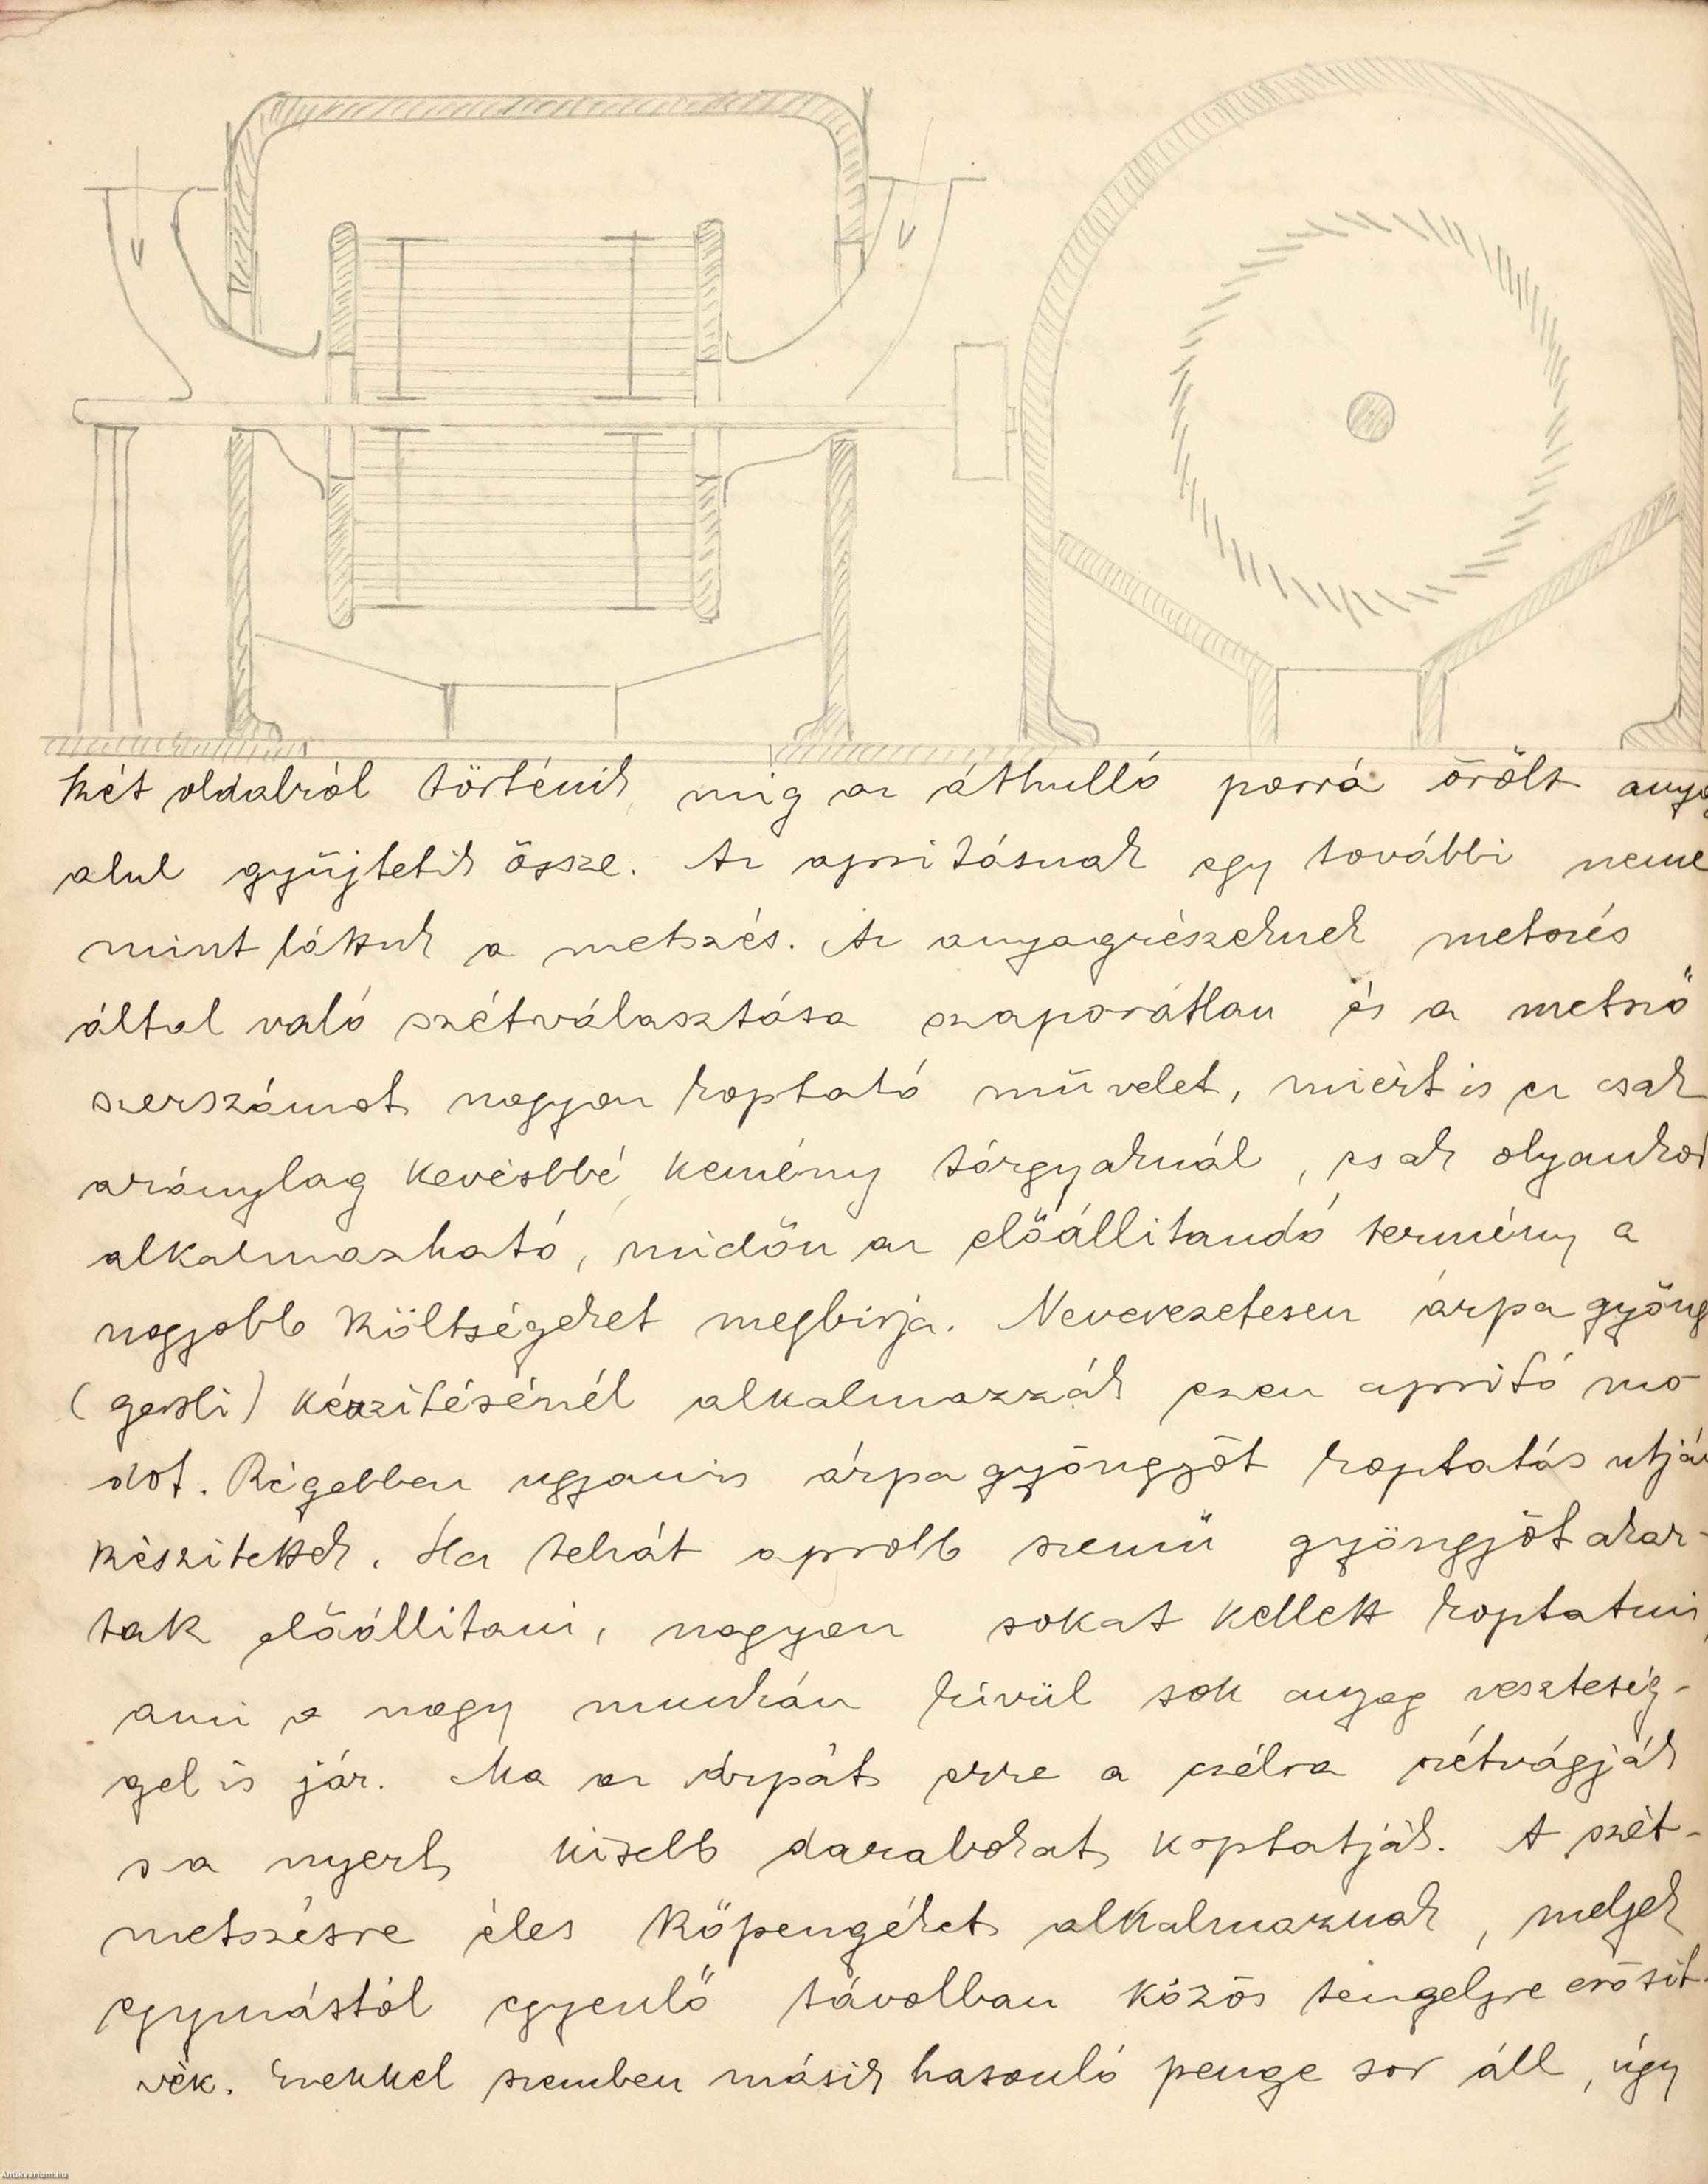 két oldalról történik míg az áthulló porrá őrölt anyag
alul gyűjtetik össze. Az aprításnak egy további neme
mint láttuk a metszés. Az anyagrészeknek metszés
által való szétválasztása szaporátlan és a metsző
szerszámot nagyon koptató művelet, miért is ez csak
aránylag kevésbbé kemény tárgyaknál, csak olyankor
alkalmazható, midőn az előállitandó termény a
nagyobb költségeket megbirja. Nevevezetesen árpa gyöng
(gersli) készitésénél alkalmazzák ezen apritó mó-
dot. Régebben ugyanis árpa gyöngyöt koptatás utján
készitettek. Ha tehát apróbb szemü gyöngyöt akar-
tak előállitani, nagyon sokat kellett koptatni,
ami a nagy munkán kívül sok anyag veszteség-
gel is jár. Ma az árpát erre a célra szétvágják
s a nyert kisebb darabokat koptatják. A szét-
metszésre éles kőpengéket alkalmaznak, melyek
egymástól egyenlő távolban közös tengelyre erősit-
vék. Ezekkel szemben másik hasonló penge sor áll, úgy
Antikvarium.hu